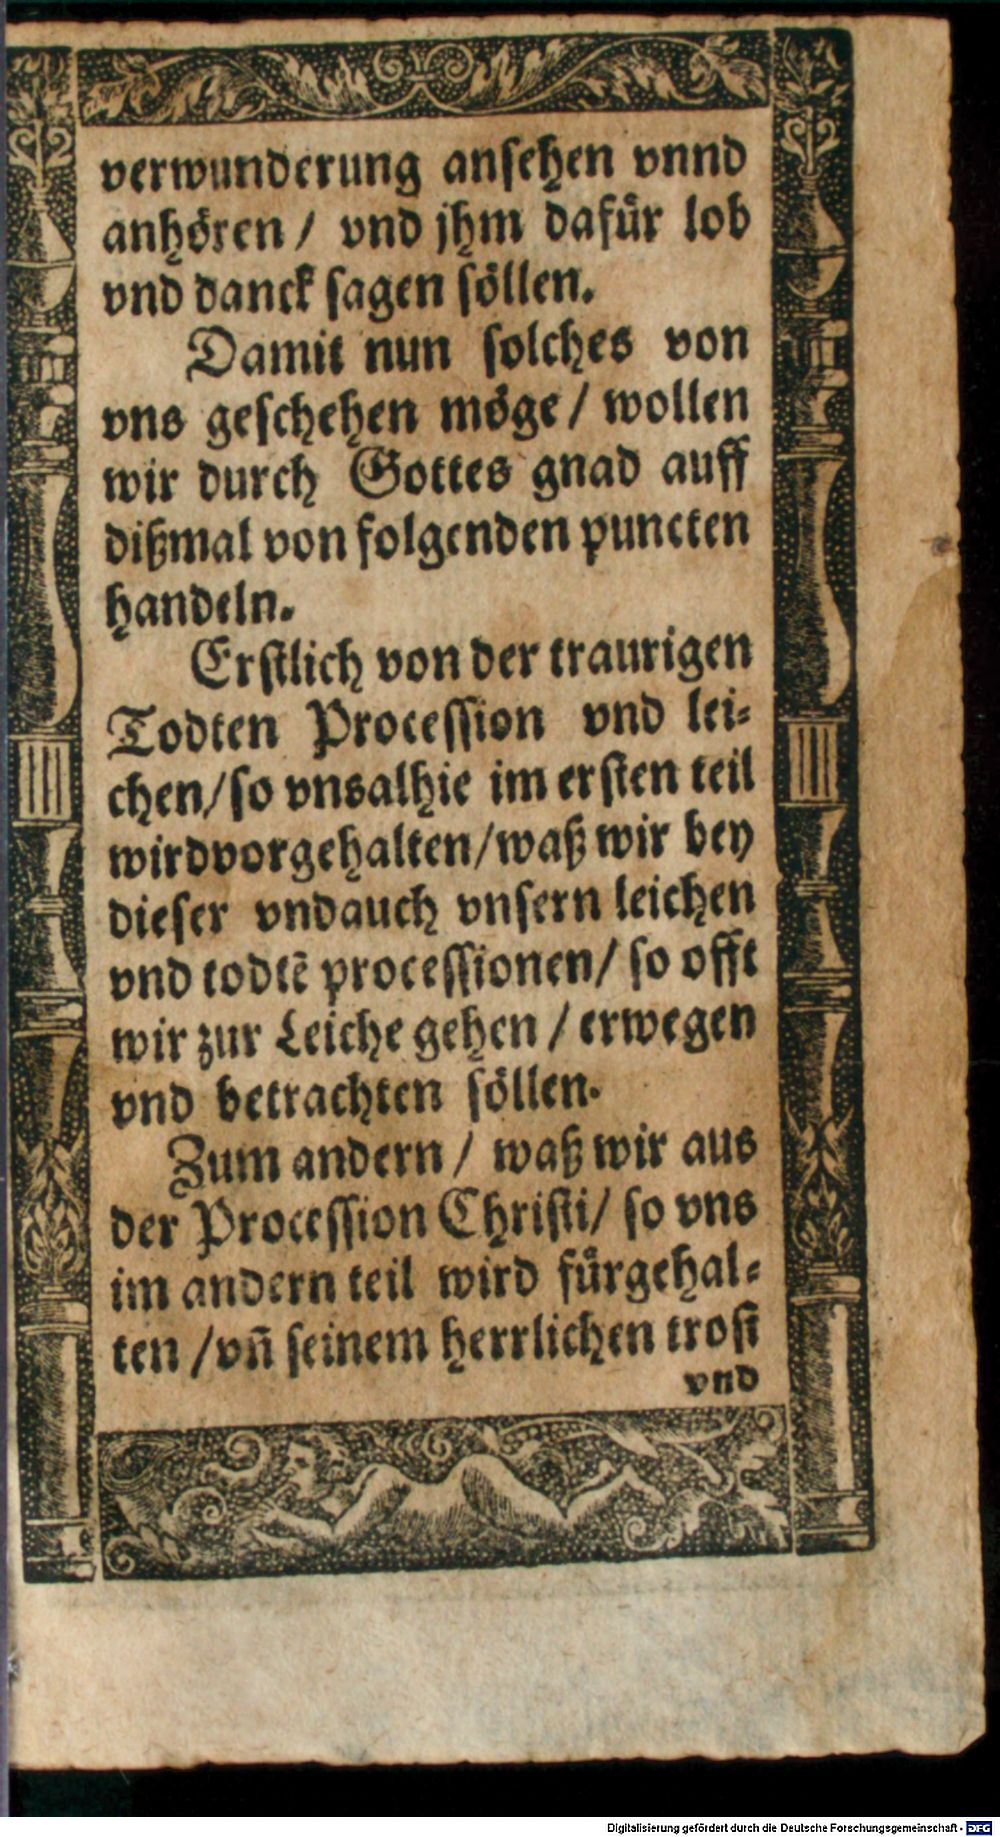 verwunderung ansehen vnnd
anhören / vnd jhm dafür lob
vnd danck sagen söllen.
Damit nun solches von
vns geschehen möge / wollen
wir durch Gottes gnad auff
dißmal von folgenden puncten
handeln.
Erstlich von der traurigen
Todten Procession vnd lei-
chen/so vnsalhie im ersten teil
wirdvorgehalten/waß wir bey
dieser vndauch vnsern leichen
vnd todtē processionen/ so offt
wir zur Leiche gehen / erwegen
vnd betrachten söllen.
Zum andern / waß wir aus
der Procession Christi/ so vns
im andern teil wird fürgehal-
ten /vn̄ seinem herrlichen trost
vnd
Digitalisierung gefördert durch die Deutsche Forschungsgemeinschaft - DFG